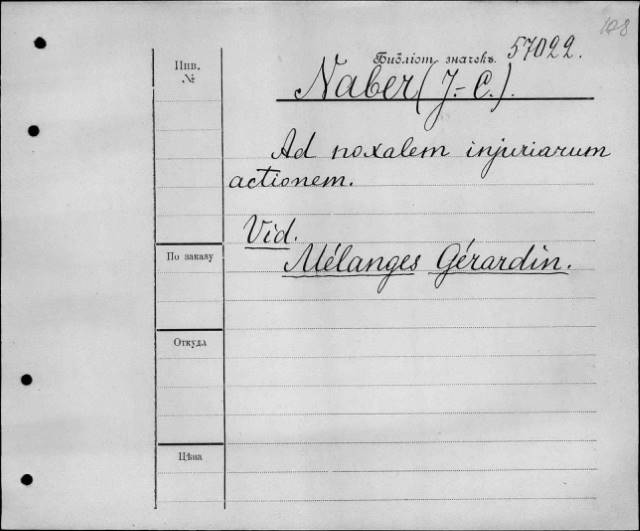 108
Библіот. значекъ. 57022.
Инв.
№
Naber (J.-C.).
Ad noxalem injuriarum
actionem.
Vid.
Mélanges Gérardin.
По заказу
Откуда
Цѣна